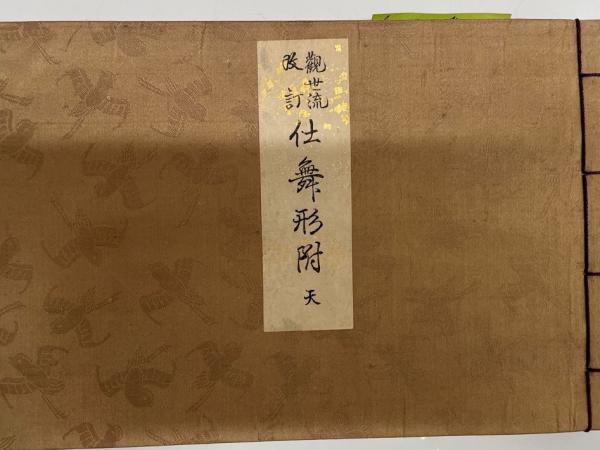 觀世流
改訂
仕舞形附 天